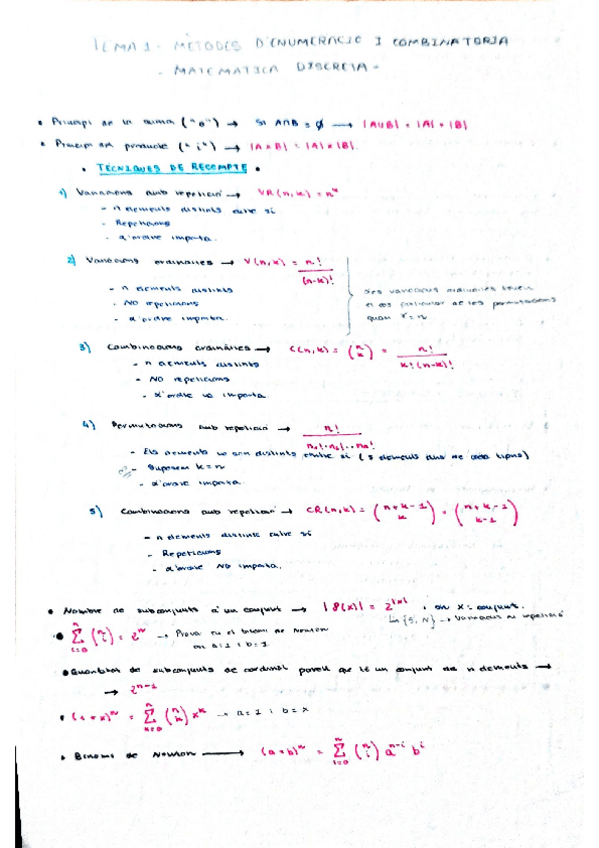 TEMA 1 - MÈTODES D'ENUMERACIÓ I COMBINATÒRIA
- MATEMÀTICA DISCRETA -
• Principi de la suma ("o") → Si A∩B = ∅ → |A∪B| = |A| + |B|
• Principi del producte ("i") → |A×B| = |A|×|B|.
• TÈCNIQUES DE RECOMPTE •
1) Variacions amb repetició → VR(n,k) = nᵏ
- n elements distints entre sí
- Repeticions
- L'ordre importa.
2) Variacions ordinàries → V(n,k) = n! / (n-k)!
- n elements distints
- NO repeticions
- L'ordre importa.
Les variacions ordinàries
el cas particular de les permutacions
quan r=n
3) Combinacions ordinàries → C(n,k) = (n k) = n! / k!(n-k)!
- n elements distints
- NO repeticions
- L'ordre no importa.
4) Permutacions amb repetició → n! / n₁!·n₂!...
- Els elements no son distints entre sí (s elements de cada tipus)
- Suposem k=n
- L'ordre importa.
5) Combinacions amb repetició → CR(n,k) = (n+k-1 k) = (n+k-1 k-1)
- n elements distints entre sí
- Repeticions
- L'ordre NO importa.
• Nombre de subconjunts d'un conjunt → |P(x)| = 2^|x|, on x: conjunt.
{S, N} → Variacions repetició
• Σ i=0 n (n i) = 2ⁿ → Prova en el binomi de Newton
on a=1 i b=1
• Quantitat de subconjunts de cardinal parell que té un conjunt de n elements →
→ 2ⁿ⁻¹
• (1+x)ⁿ = Σ k=0 n (n k) xᵏ → a=1 i b=x
• Binomi de Newton → (a+b)ⁿ = Σ i=0 n (n i) aⁿ⁻ⁱ bⁱ